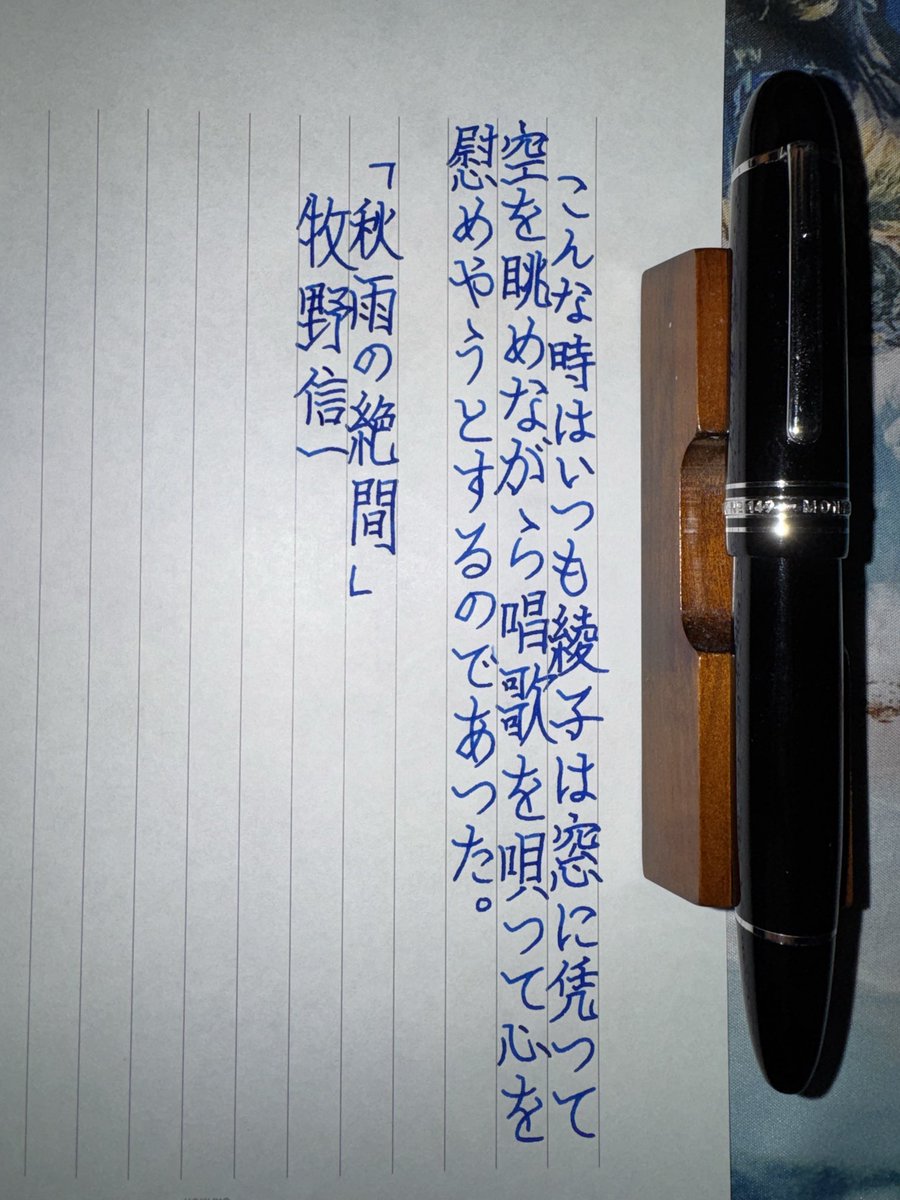 こんな時はいつも綾子は窓に凭つて
空を眺めながら唱歌を唄つて心を
慰めやうとするのであつた。
「秋雨の絶間」
牧野信一